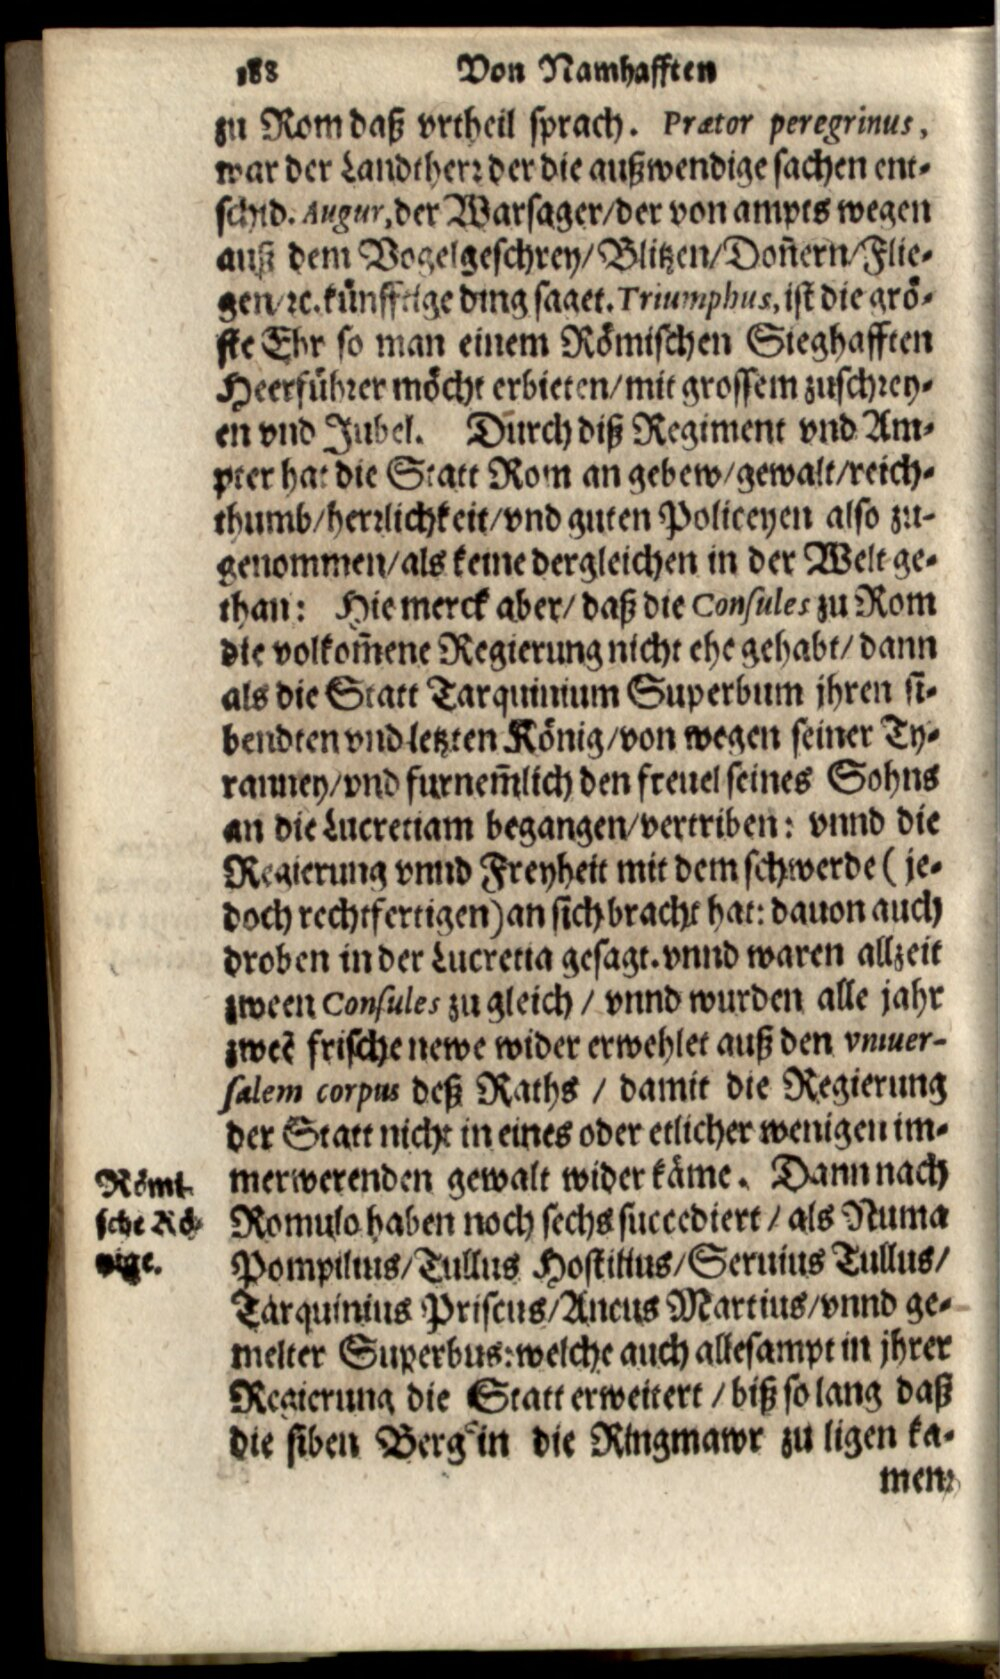 188 Von Namhafften
zu Rom daß vrtheil sprach. Prætor peregrinus,
war der Landtherr der die außwendige sachen ent-
schid. Augur, der Warsager/der von ampts wegen
auß dem Vogelgeschrey/Blitzen/Don̄ern/Flie-
gen/ꝛc. künfftige ding saget. Triumphus, ist die grö-
ste Ehr so man einem Römischen Sieghafften
Heerführer möcht erbieten/mit grossem zuschrey-
en vnd Jubel. Durch diß Regiment vnd Am-
pter hat die Statt Rom an gebew/gewalt/reich-
thumb/herrlichkeit/vnd guten Policeyen also zu-
genommen/als keine dergleichen in der Welt ge-
than: Hie merck aber/daß die Consules zu Rom
die volkom̄ene Regierung nicht ehe gehabt/dann
als die Statt Tarquinium Superbum jhren si-
bendten vnd letzten König/von wegen seiner Ty-
ranney/vnd furnem̄lich den freuel seines Sohns
an die Lucretiam begangen/vertriben: vnnd die
Regierung vnnd Freyheit mit dem schwerde (je-
doch rechtfertigen) an sich bracht hat: dauon auch
droben in der Lucretia gesagt. vnnd waren allzeit
zween Consules zu gleich / vnnd wurden alle jahr
zweē frische newe wider erwehlet auß den vniuer-
salem corpus deß Raths / damit die Regierung
der Statt nicht in eines oder etlicher wenigen im-
merwerenden gewalt wider käme. Dann nach
Romulo haben noch sechs succediert / als Numa
Pompilius/Tullus Hostilius/Seruius Tullus/
Tarquinius Priscus/Ancus Martius/vnnd ge-
melter Superbus: welche auch allesampt in jhrer
Regierung die Statt erweitert / biß so lang daß
die siben Berg in die Ringmawr zu ligen ka-
men/
Römi-
sche Kö-
nige.